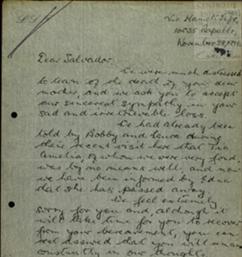 Dear Salvador,
We were much distressed
to learn of the death of your dear
mother, and we ask you to accept
our sincerest sympathy in your
sad and irretrievable loss.
We had already been
told by Bobby and Laura during
their recent visit here that Tia
Amelia, of whom we were very fond,
was by no means well, and now
we have been informed by Edna
that she has passed away.
We feel extremely
sorry for you and, although it
will take time for you to recover
from your bereavement, you can
rest assured that you will remain
constantly in our thoughts